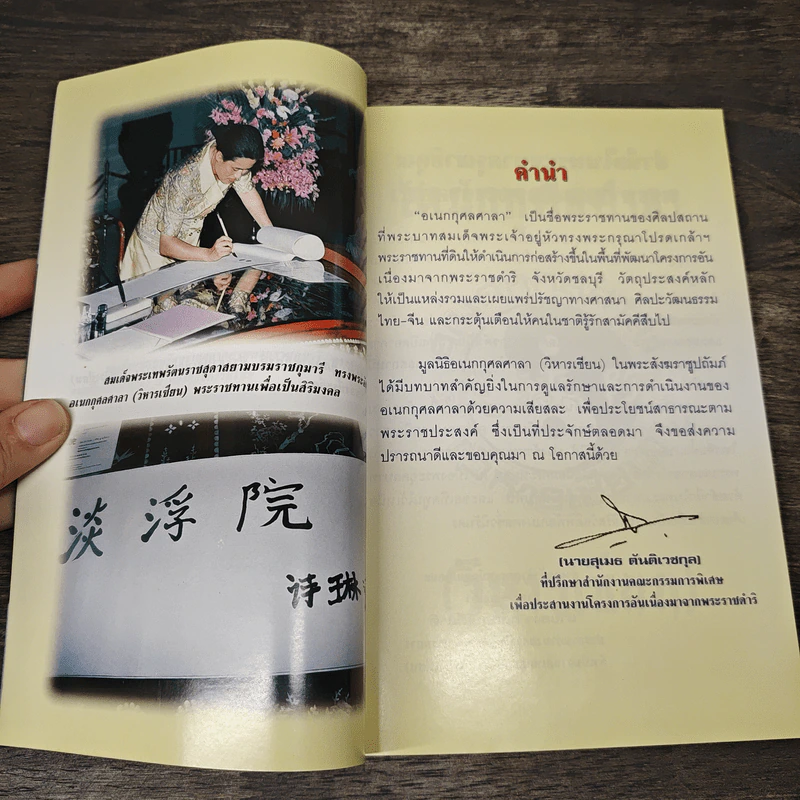 สมเด็จพระเทพรัตนราชสุดาสยามบรมราชกุมารี ทรงพระ
อเนกกุศลศาลา (วิหารเซียน) พระราชทานเพื่อเป็นสิริมงคล
淡浮院
诗琳
คำนำ
"อเนกกุศลศาลา" เป็นชื่อพระราชทานของศิลปสถาน
ที่พระบาทสมเด็จพระเจ้าอยู่หัวทรงพระกรุณาโปรดเกล้าฯ
พระราชทานที่ดินให้ดำเนินการก่อสร้างขึ้นในพื้นที่พัฒนาโครงการอัน
เนื่องมาจากพระราชดำริ จังหวัดชลบุรี วัตถุประสงค์หลัก
ให้เป็นแหล่งรวมและเผยแพร่ปรัชญาทางศาสนา ศิลปะวัฒนธรรม
ไทย-จีน และกระตุ้นเตือนให้คนในชาติรู้รักสามัคคีสืบไป
มูลนิธิอเนกกุศลศาลา (วิหารเซียน) ในพระสังฆราชูปถัมภ์
ได้มีบทบาทสำคัญยิ่งในการดูแลรักษาและการดำเนินงานของ
อเนกกุศลศาลาด้วยความเสียสละ เพื่อประโยชน์สาธารณะตาม
พระราชประสงค์ ซึ่งเป็นที่ประจักษ์ตลอดมา จึงขอส่งความ
ปรารถนาดีและขอบคุณมา ณ โอกาสนี้ด้วย
(นายสุเมธ ตันติเวชกุล)
ที่ปรึกษาสำนักงานคณะกรรมการพิเศษ
เพื่อประสานงานโครงการอันเนื่องมาจากพระราชดำริ